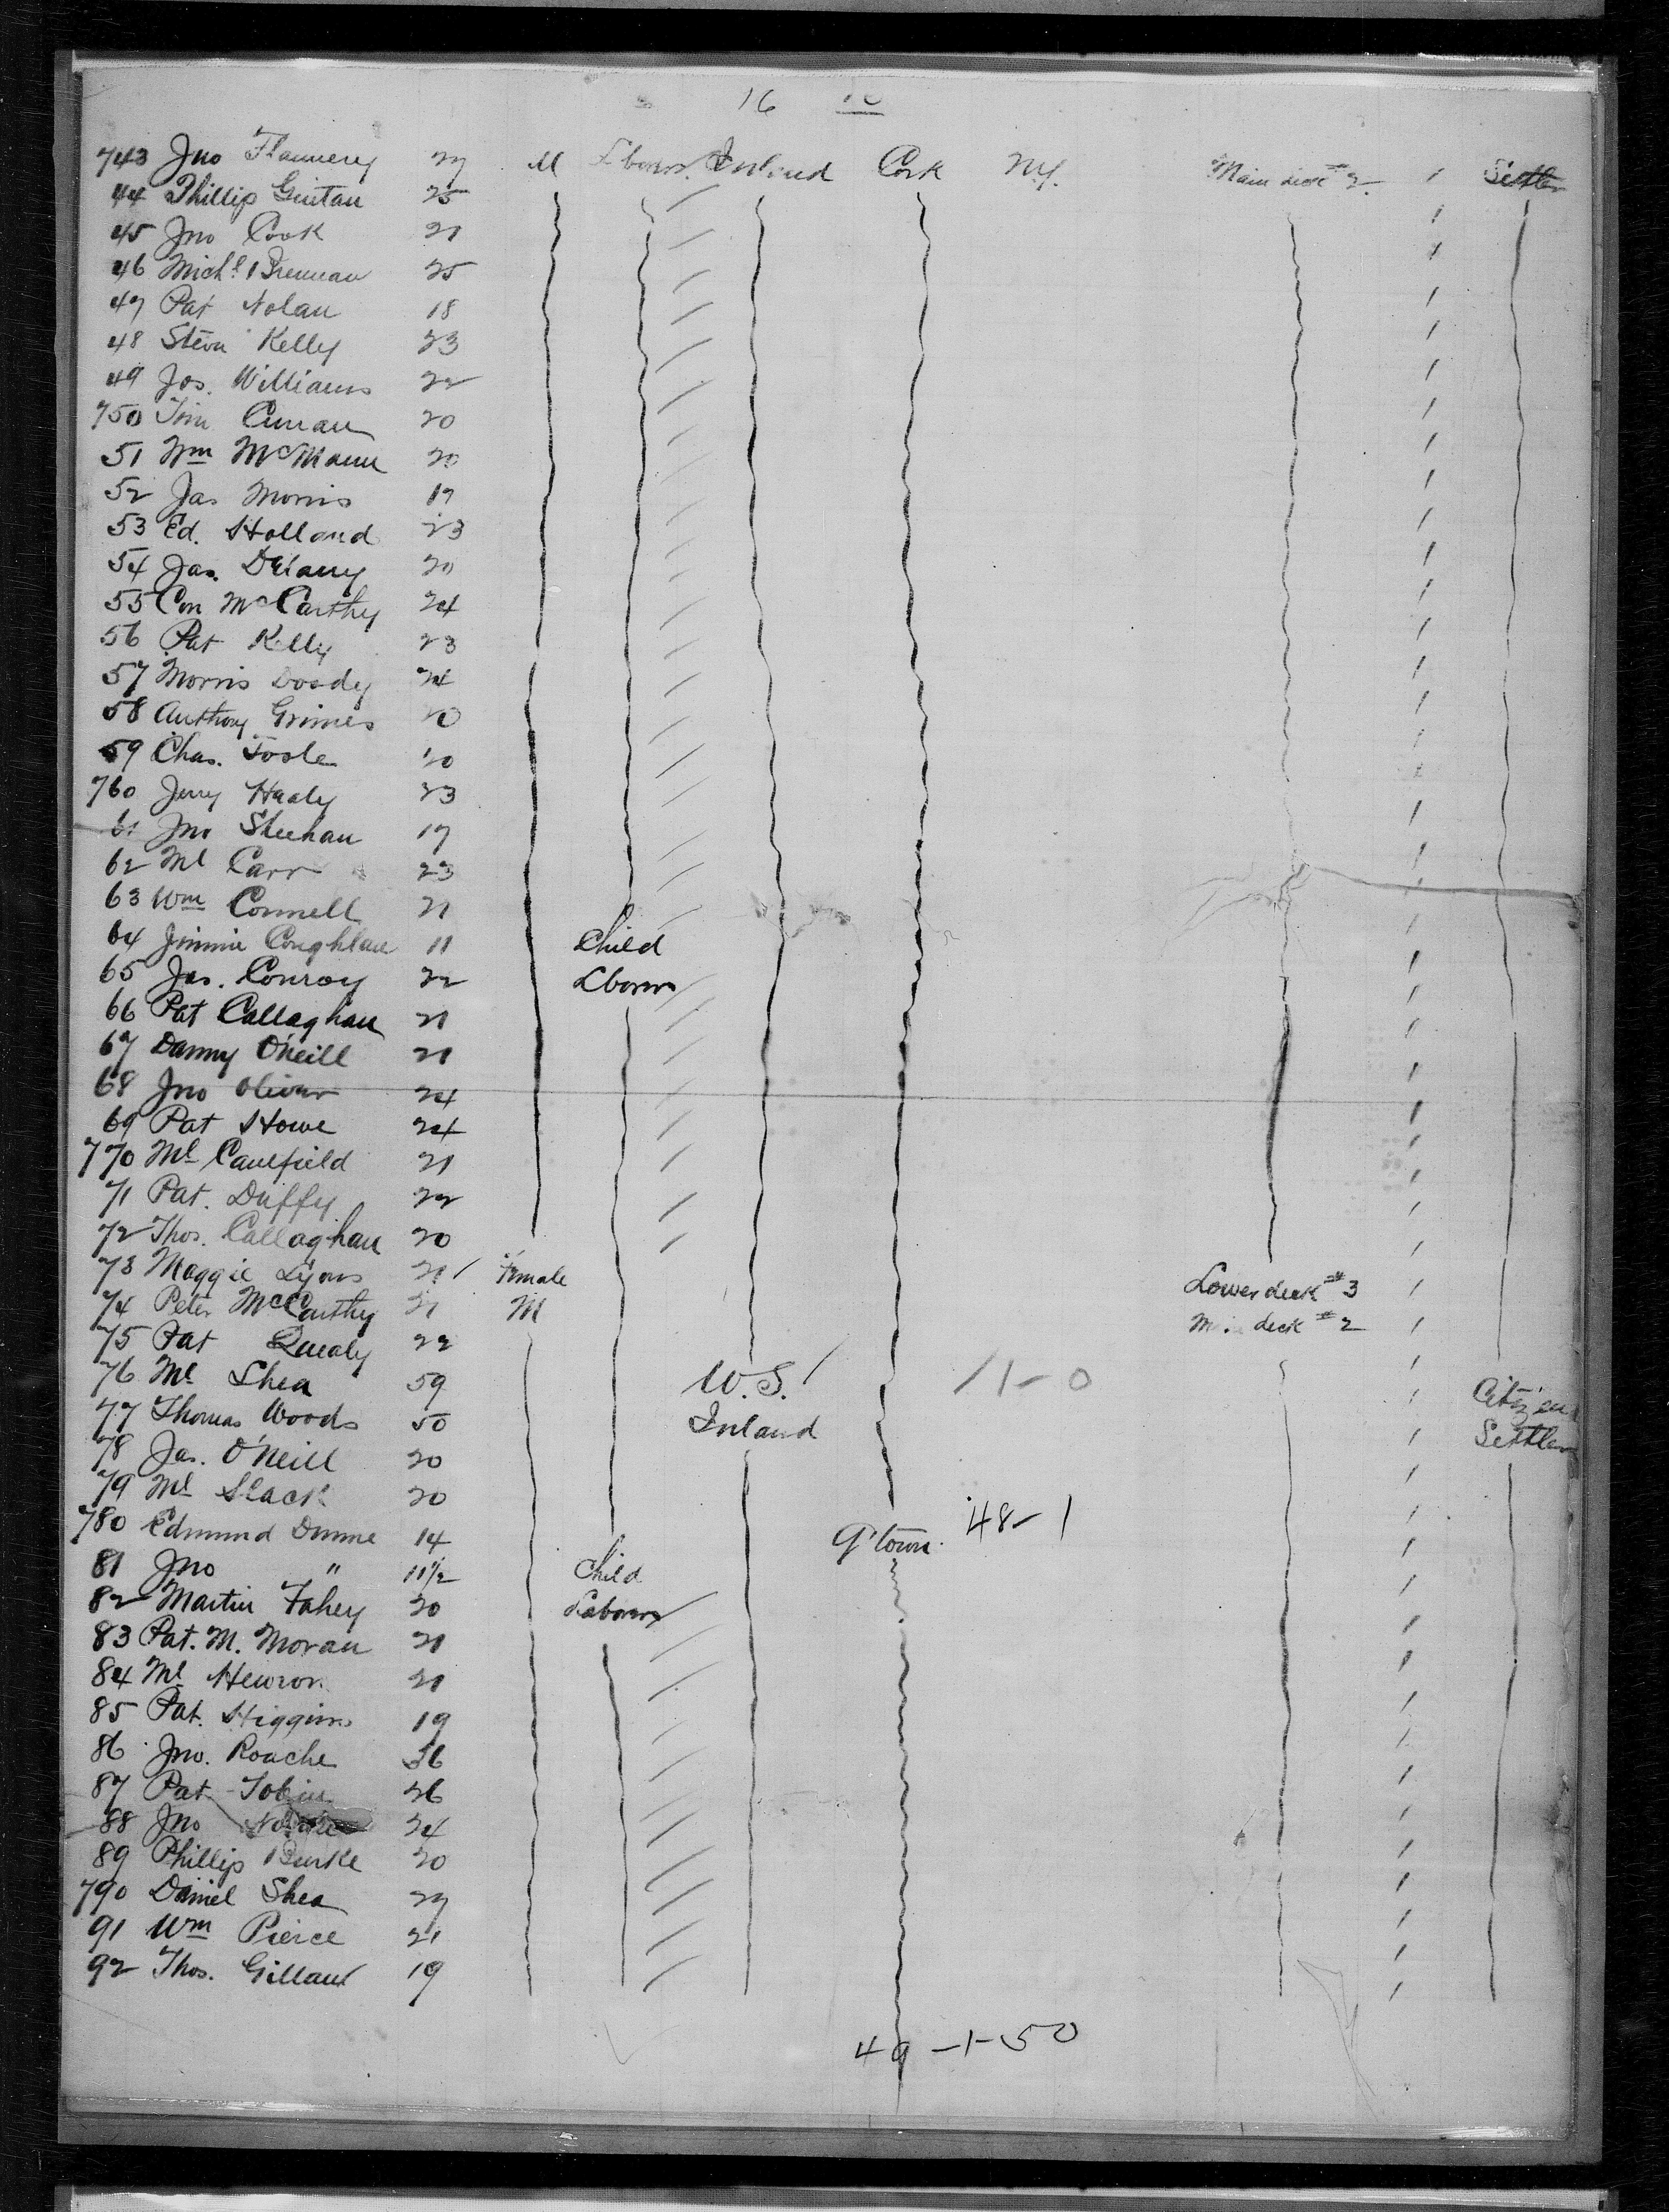 16 16
743 Jno Flannery 27 M Lborer Inland Cork N.Y. Main deck #2 / Settler
44 Phillip Gintan 25 /
45 Jno Cook 21 /
46 Michl Brennan 25 /
47 Pat Nolan 18 /
48 Steva Kelly 23 /
49 Jos. Williams 22 /
750 Tim Curran 20 /
51 Wm McMann 20 /
52 Jas Morris 17 /
53 Ed. Holland 23 /
54 Jas. Delany 20 /
55 Con McCarthy 24 /
56 Pat Kelly 23 /
57 Morris Doody 24 /
58 Anthony Grimes 20 /
59 Chas. Toole 20 /
760 Jerry Healy 23 /
61 Jno Sheehan 17 /
62 Ml Carr 23 /
63 Wm Connell 21 /
64 Jimmie Coughlan 11 Child /
65 Jas. Conroy 22 Lborer /
66 Pat Callaghan 21 /
67 Danny O'Neill 21 /
68 Jno Oliver 24 /
69 Pat Howe 24 /
770 Ml Caulfield 21 /
71 Pat. Duffy 22 /
72 Thos. Callaghan 20 /
73 Maggie Lyons 21 / Female Lower deck #3 /
74 Peter McCarthy 21 M M. deck #2 /
75 Pat Quealy 22 /
76 Ml Shea 59 U.S. / 11-0 / Citizen
77 Thomas Woods 50 Inland / Settler
78 Jas. O'Neill 20 /
79 Ml Slack 20 /
780 Edmund Dunne 14 Q'town 48-1 /
81 Jno " 11 1/2 Child /
82 Martin Fahey 20 Laborer /
83 Pat. M. Moran 21 /
84 Ml Hewron 21 /
85 Pat. Higgins 19 /
86 Jno. Roache 36 /
87 Pat Tobin 26 /
88 Jno 24 /
89 Phillip Burke 20 /
790 Daniel Shea 27 /
91 Wm Pierce 21 /
92 Thos. Gillan 19 /
49-1-50